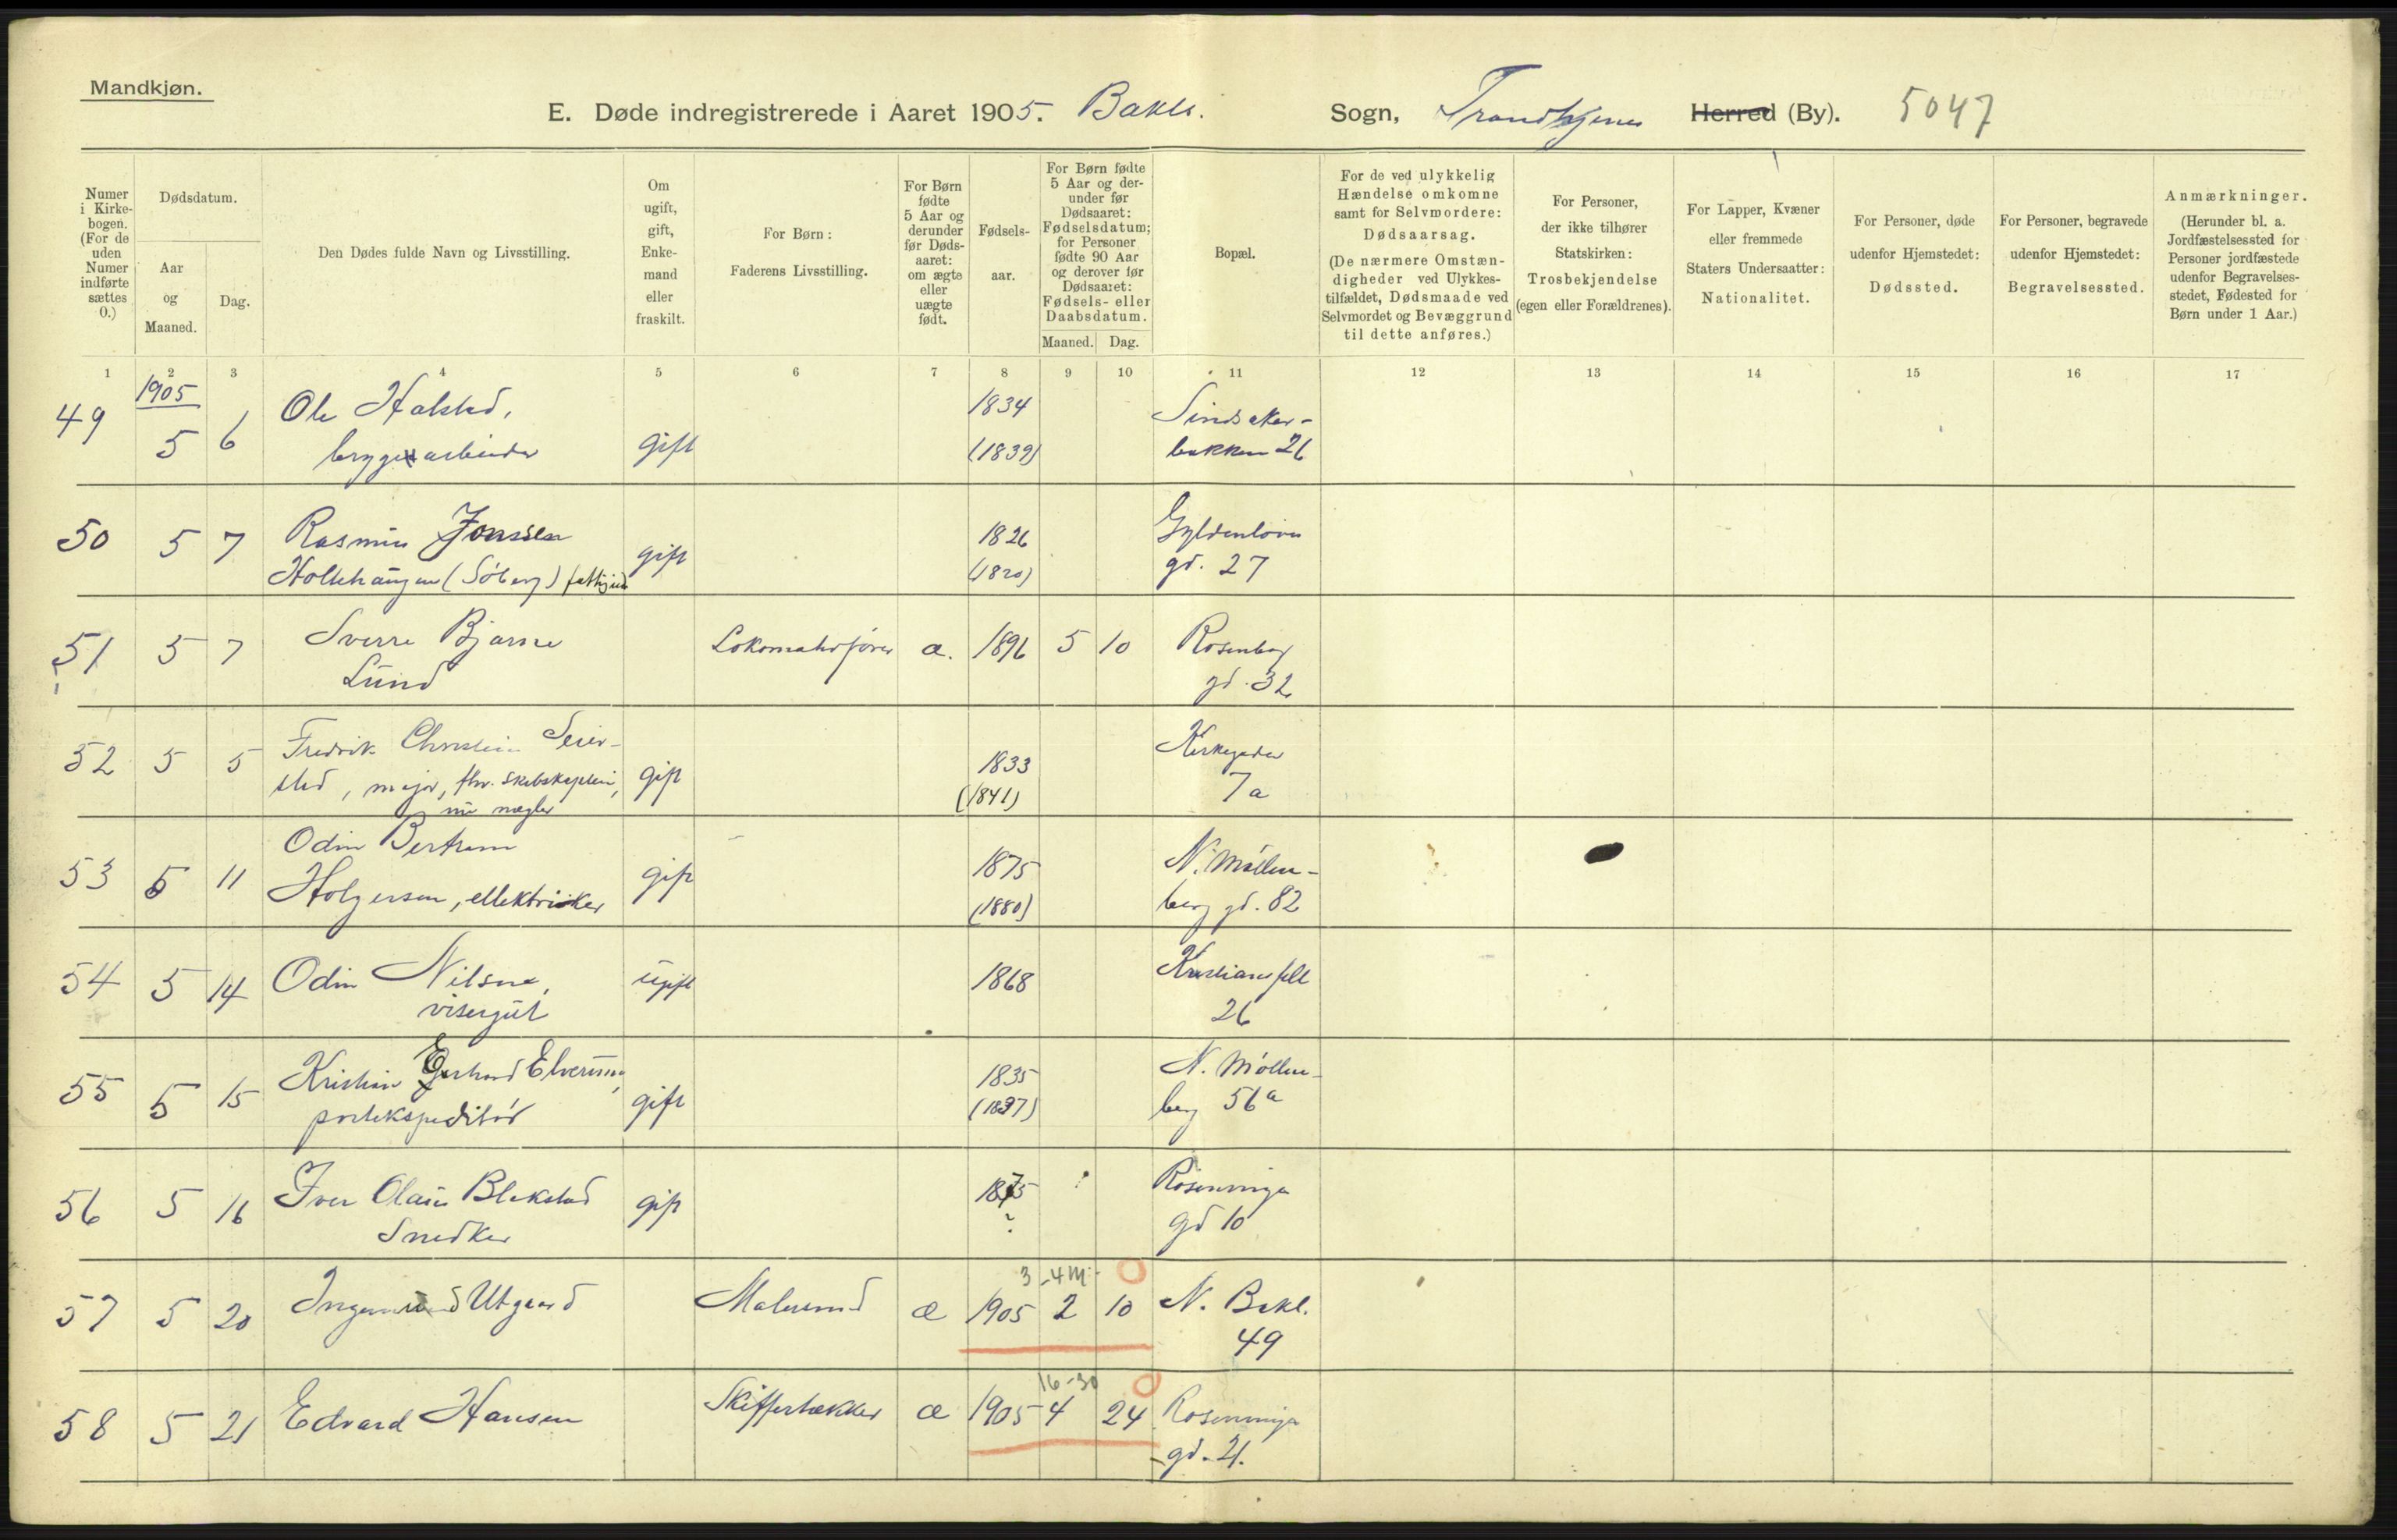 Mandkjøn.
E. Døde indregistrerede i Aaret 1905. Bakle. Sogn, Trondhjems Herred (By). 5047
Numer i Kirke-bogen. (For de uden Numer indførte sættes 0.)
Dødsdatum.
Aar og Maaned.
Dag.
Den Dødes fulde Navn og Livsstilling.
Om ugift, gift, Enke-mand eller fraskilt.
For Børn: Faderens Livsstilling.
For Børn fødte 5 Aar og derunder før Døds-aaret: om ægte eller uægte født.
Fødsels-aar.
For Børn fødte 5 Aar og der-under før Dødsaaret: Fødselsdatum; for Personer fødte 90 Aar og derover før Dødsaaret: Fødsels- eller Daabsdatum.
Maaned. Dag.
Bopæl.
For de ved ulykkelig Hændelse omkomne samt for Selvmordere: Dødsaarsag. (De nærmere Omstæn-digheder ved Ulykkes-tilfældet, Dødsmaade ved Selvmordet og Bevæggrund til dette anføres.)
For Personer, der ikke tilhører Statskirken: Trosbekjendelse (egen eller Forældrenes).
For Lapper, Kvæner eller fremmede Staters Undersaatter: Nationalitet.
For Personer, døde udenfor Hjemstedet: Dødssted.
For Personer, begravede udenfor Hjemstedet: Begravelsessted.
Anmærkninger. (Herunder bl. a. Jordfæstelsessted for Personer jordfæstede udenfor Begravelses-stedet, Fødested for Børn under 1 Aar.)
1 2 3 4 5 6 7 8 9 10 11 12 13 14 15 16 17
1905
49 5 6 Ole Halsted, 1834 Sindsaker-
bryggearbeider gift (1839) bakken 26
50 5 7 Rasmus Jonssen gift 1826 Gyldenløves
(Söberg) (1820) gd. 27
51 5 7 Sverre Bjarne Lokomotivfører æ. 1896 5 10 Rosenborg
Lund gd. 32
52 5 5 Fredrik Christian Seier- 1833 Kirkegaden
sted, major, fhv. Skibskaptein, gift (1841) 7a
nu mægler
53 5 11 Odin Bertram 1875 N. Möllen-
Holgersen, ellektriker gift (1880) berg gd. 82
54 5 14 Odin Nilsen, ugift 1868 Kristiansfelt
visergut 26
55 5 15 Kristian Gerhard Elverum, 1835 N. Möllen-
postekspeditör gift (1837) berg 56a
56 5 16 Iver Olaus Blekstad gift 1875 Roseninga
Snedker ? gd 10
3-4 m.
57 5 20 Ingemund Utgaard Malersvend æ 1905 2 10 N. Bakl.
49
16-30
58 5 21 Edvard Hansen Skiffertækker æ 1905 4 24 Roseninga
gd. 21.